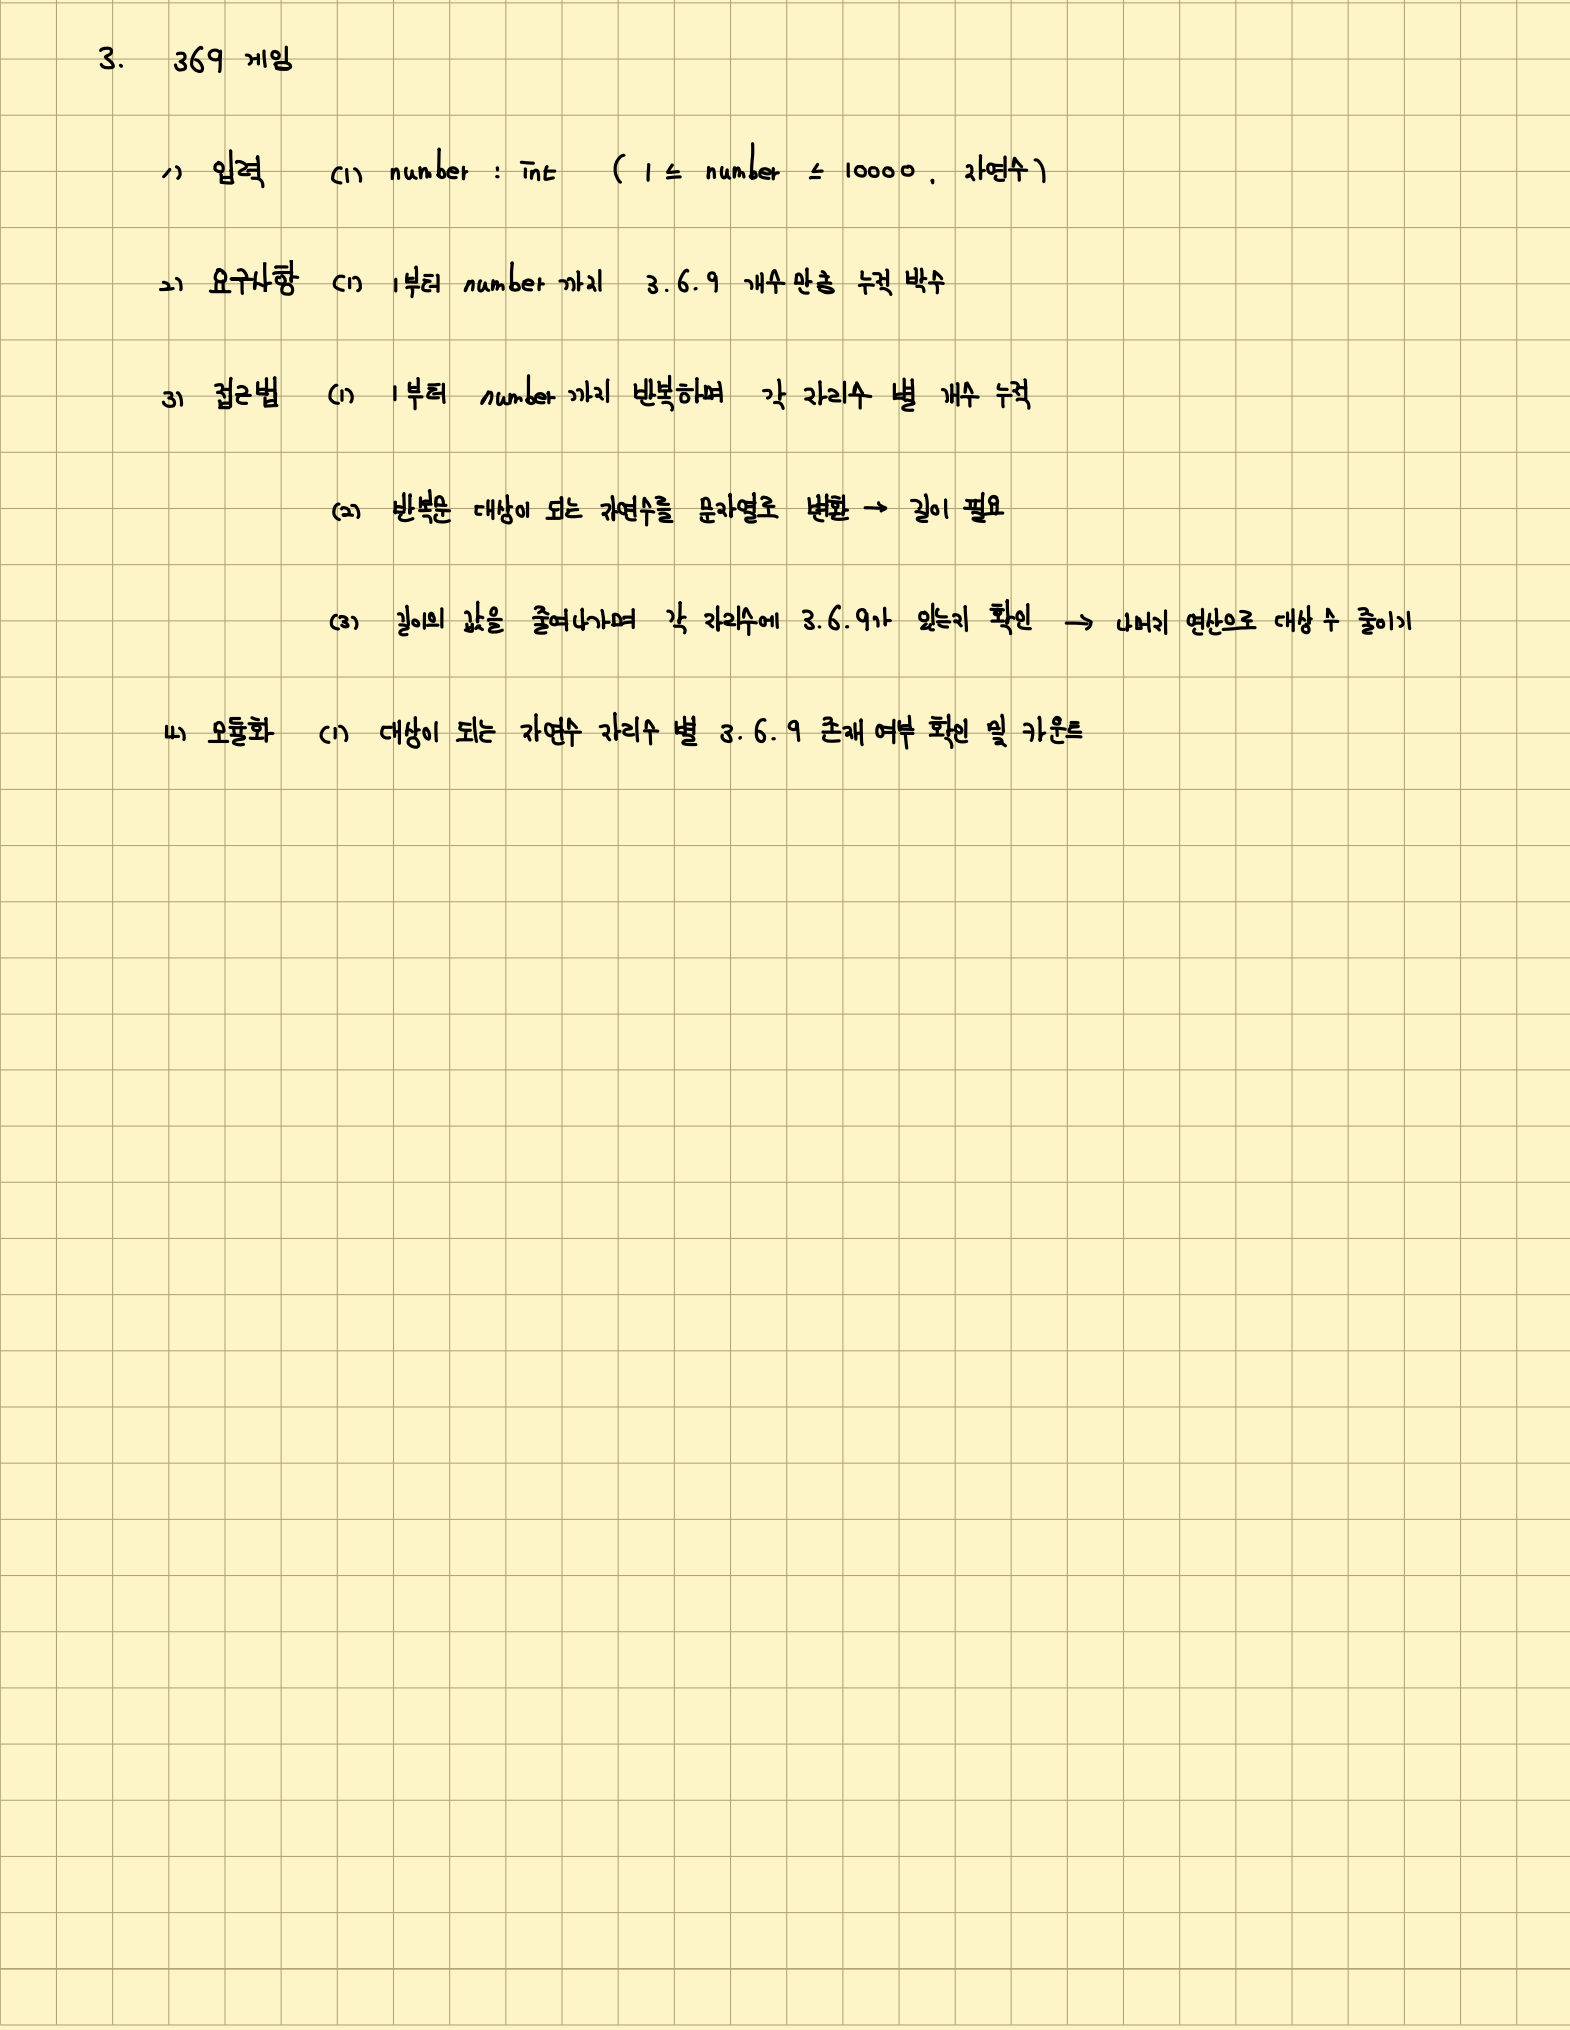 3. 369 게임
1) 입력 (1) number : int ( 1 ≤ number ≤ 10000, 자연수 )
2) 요구사항 (1) 1부터 number 까지 3.6.9 개수 만큼 누적 박수
3) 접근법 (1) 1부터 number 까지 반복하며 각 자리수 별 개수 누적
(2) 반복문 대상이 되는 자연수를 문자열로 변환 → 길이 필요
(3) 길이의 값을 줄여나가며 각 자리수에 3.6.9가 있는지 확인 → 나머지 연산으로 대상 수 줄이기
4) 모듈화 (1) 대상이 되는 자연수 자리수 별 3.6.9 존재 여부 확인 및 카운트